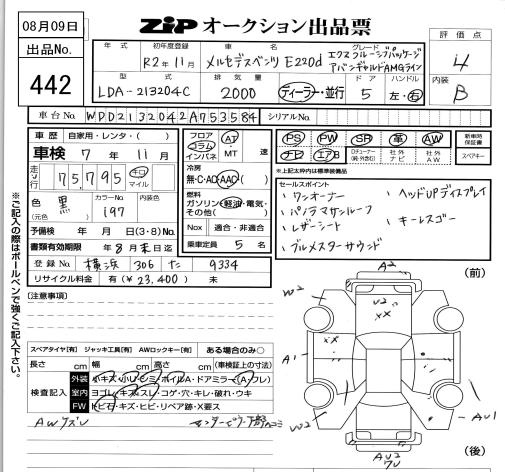 08月09日
ZIP オークション出品票
出品No. 442
評価点 4
内装 B
年式 初年度登録 車名 グレード
R2年11月 メルセデスベンツ E220d エクスクルーシブパッケージ
アバンギャルドAMGライン
型式 排気量 ドア ハンドル
LDA-213204C 2000 ディーラー・並行 5 左・右
車台No. WDD2132042A753584 シリアルNo.
車歴 自家用・レンタ・( )
車検 7年 11月
走行 75,795 キロ マイル
色 黒 (元色) カラーNo. 197 内装色
予備検 年 月 日(3・8) No.
書類有効期限 年 8月末日迄
登録No. 横浜 306 た 9334
リサイクル料金 有(¥23,400) 未
フロア コラム インパネ AT MT 速
冷房 無・C・AC・AAC
燃料 ガソリン・軽油・電気・その他( )
Nox 適合・非適合
乗車定員 5 名
PS PW SR 革 AW 新車時保証書
ナビ エアB Dチューナー 社外ナビ 社外AW スペアキー
*上記太枠内は標準装備品
セールスポイント
・ワンオーナー ・ヘッドUPディスプレイ
・パノラマサンルーフ
・レザーシート ・キーレスゴー
・ブルメスターサウンド
※ご記入の際はボールペンで強くご記入下さい。
[注意事項]
スペアタイヤ[有] ジャッキ工具[有] AWロックキー[有] ある場合のみ○
長さ cm 幅 cm 高さ cm (車検証の寸法)
検査記入
外装 小キズ・小U・シミ・ボイルA・ドアミラー(A・フレ)
室内 ヨゴレ・キズ・スレ・コゲ・穴・キレ・破れ・ウキ
FW トビ石・キズ・ヒビ・リペア跡・X要ス
AWケズレ
(前)
A2
W2
U2
XX
XX
A1
W2
AU1
AU2
(後)